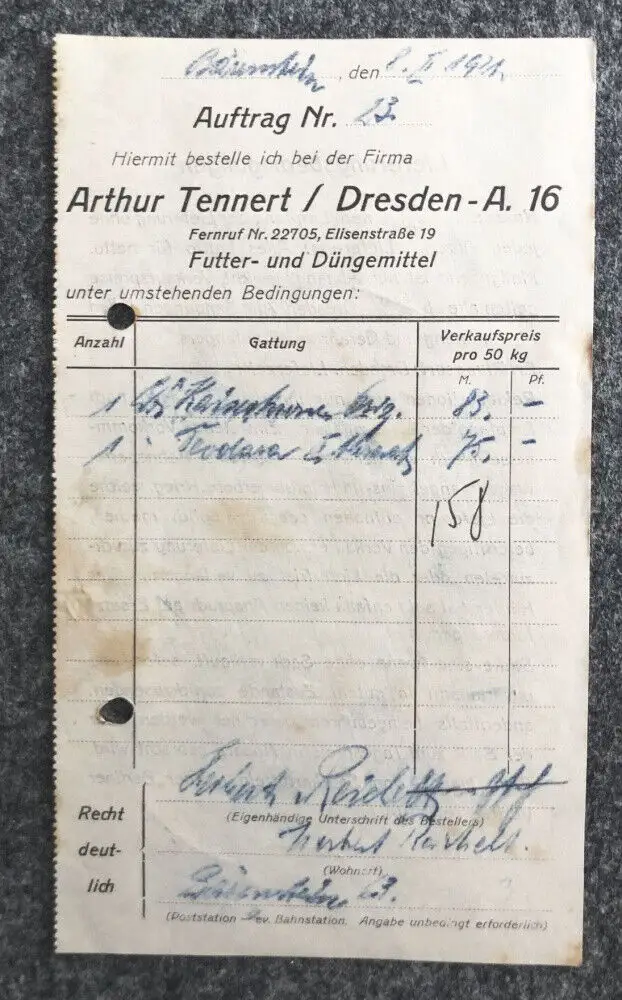 Bärenstein, den 8. II 1941.
Auftrag Nr. 23.
Hiermit bestelle ich bei der Firma
Arthur Tennert / Dresden-A. 16
Fernruf Nr. 22705, Elisenstraße 19
Futter- und Düngemittel
unter umstehenden Bedingungen:
Anzahl Gattung Verkaufspreis pro 50 kg
M. Pf.
1 83. —
1 75. —
158
Herbert
(Eigenhändige Unterschrift des Bestellers)
Herbert
(Wohnort)
Recht deut- lich
Bärenstein 23.
(Poststation bev. Bahnstation. Angabe unbedingt erforderlich)